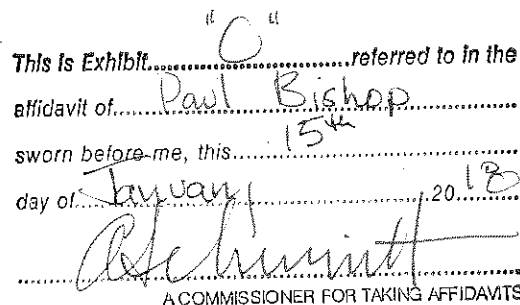 This is Exhibit "C" referred to in the
affidavit of Paul Bishop
sworn before me, this 15th
day of January 20 18
A COMMISSIONER FOR TAKING AFFIDAVITS